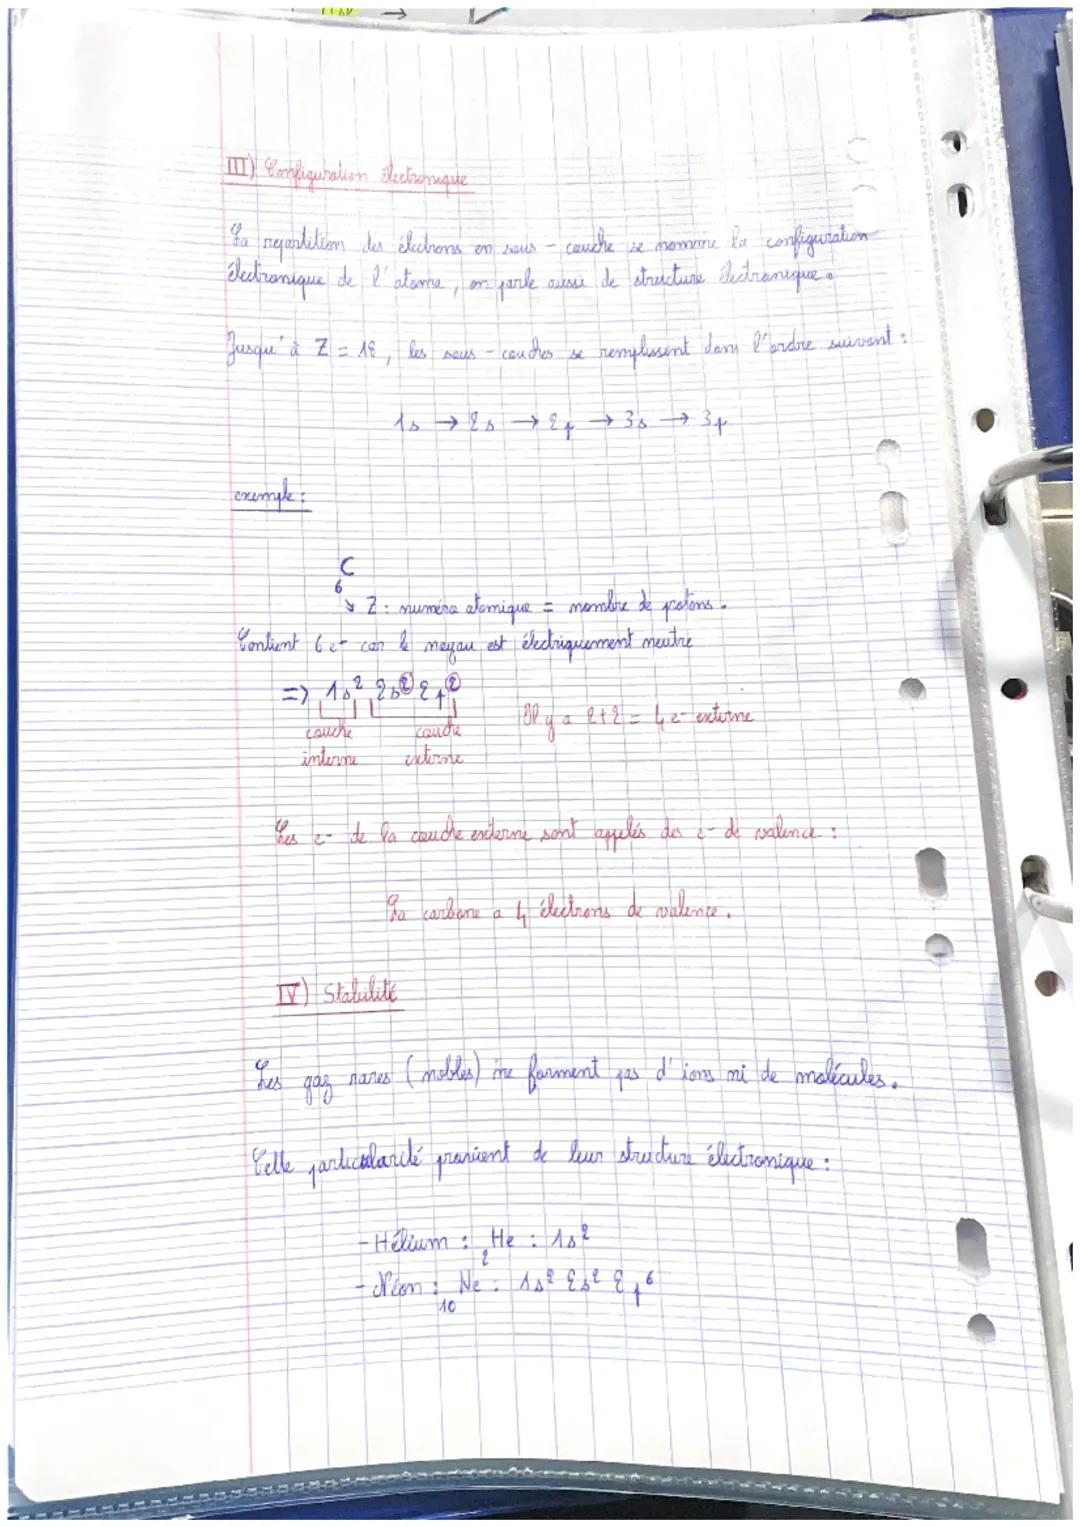 III) Configuration électronique
La repartition des électrons en sous - couche se nomme la configuration
électronique de l'atome, on parle aussi de structure électronique.
Jusqu'à Z = 18, les sous - couches se remplissent dans l'ordre suivant :
1s → 2s → 2p → 3s → 3p
exemple :
C
6
↘ Z : numéro atomique = nombre de protons.
Contient 6 e- car le noyau est électriquement neutre
=> 1s² 2s② 2p②
Il y a 2+2 = 4 e- externe
couche couche
interne externe
Les e- de la couche externe sont appelés des e- de valence :
La carbone a 4 électrons de valence.
IV) Stabilité
Les gaz rares (nobles) ne forment pas d'ions ni de molécules.
Cette particularité provient de leur structure électronique :
- Hélium : ₂He : 1s²
- Néon : ₁₀Ne : 1s² 2s² 2p⁶